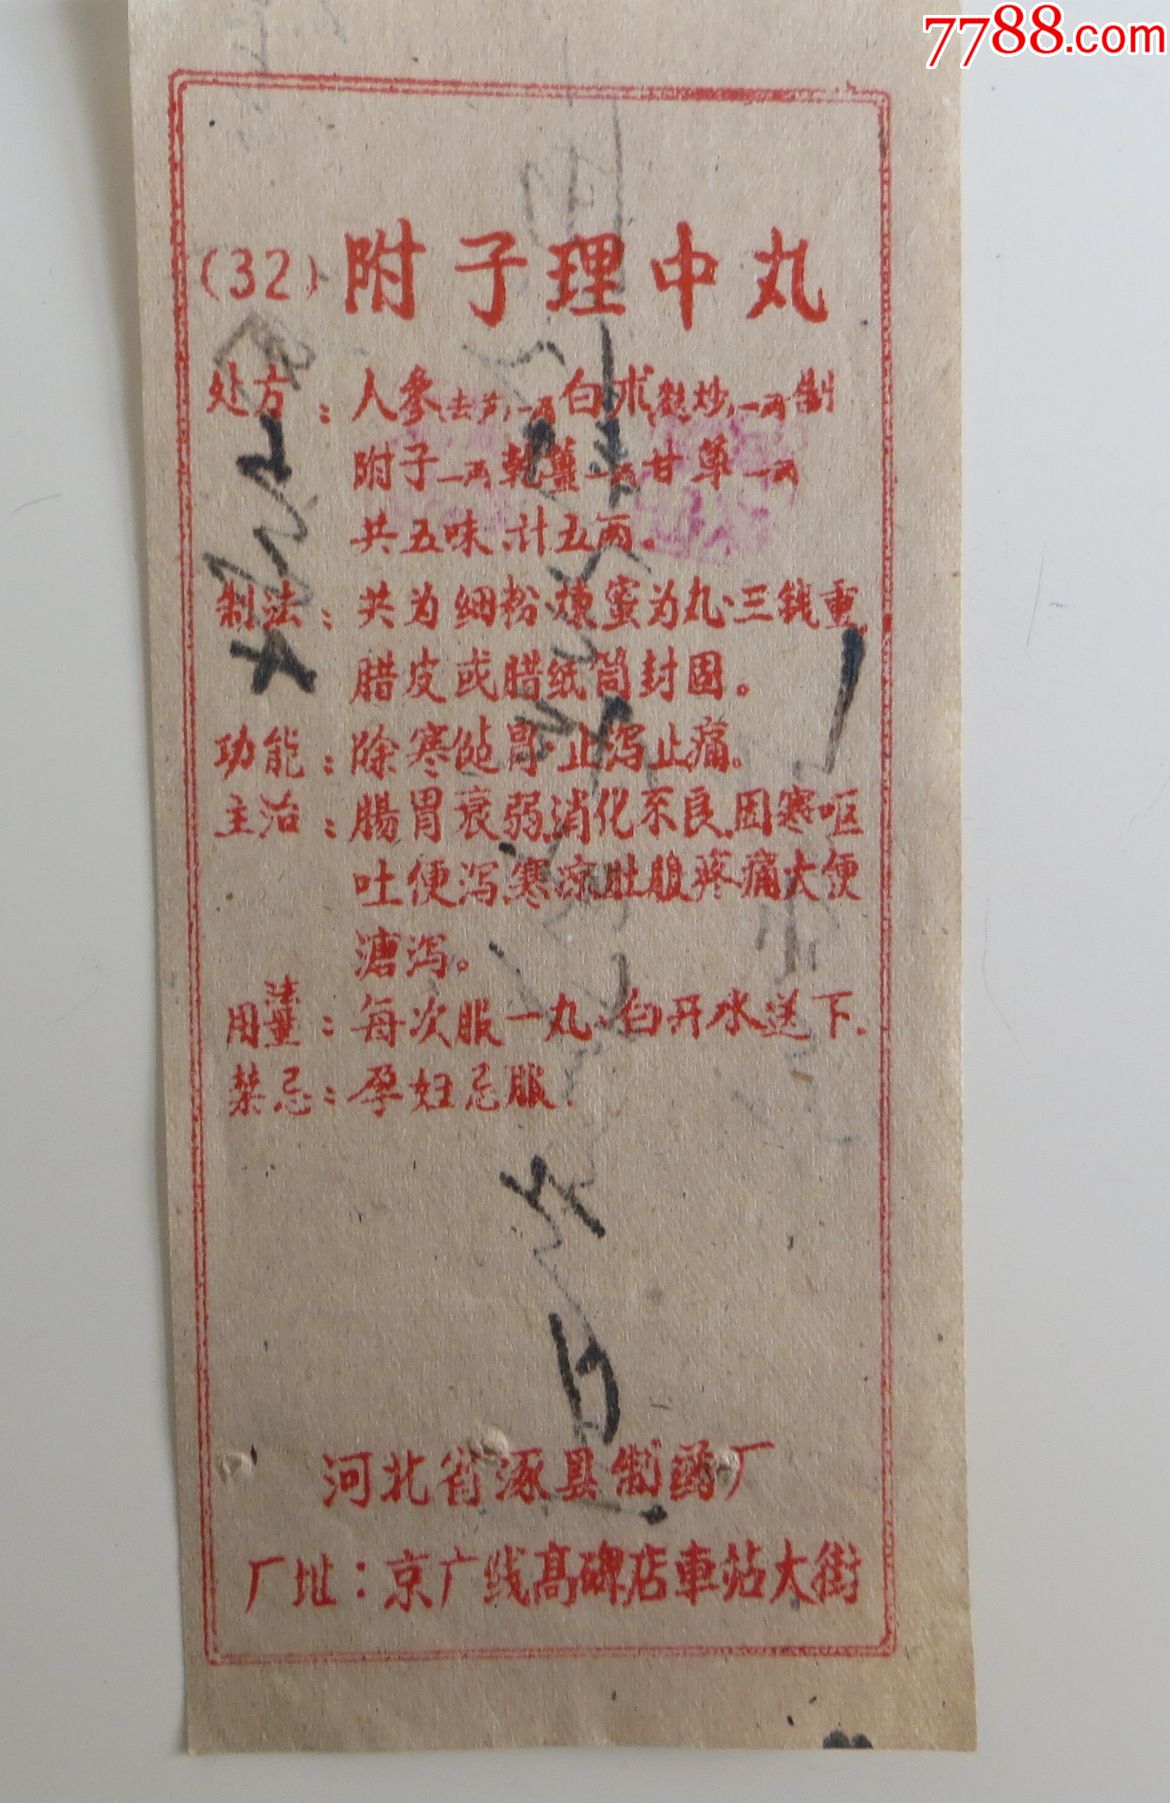 7788.com
(32) 附子理中丸
处方：人参(去芦)一两白术(麸炒)一两制
附子一两乾薑一两甘草一两
共五味、计五両。
制法：共为细粉炼蜜为丸·三钱重
腊皮或腊纸筒封固。
功能：除寒健胃·止泻止痛。
主治：腸胃衰弱消化不良因寒呕
吐便泻寒凉肚腹疼痛大便
溏泻。
用法量：每次服一丸、白开水送下.
禁忌：孕妇忌服.
河北省涿县制药厂
厂址：京广线高碑店車站大街